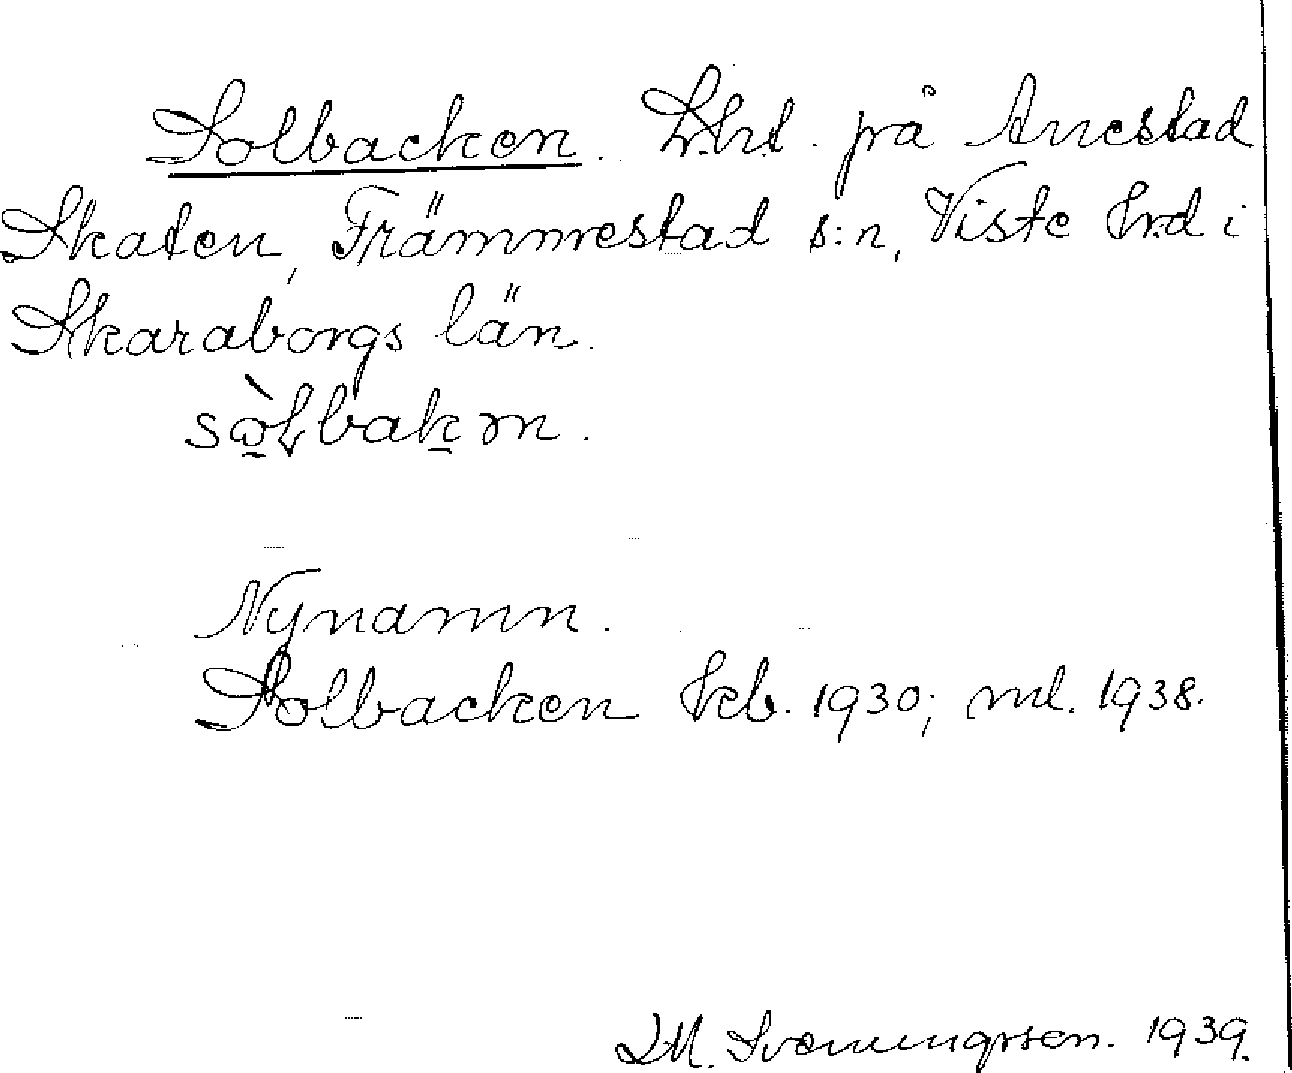 Solbacken. Lht. på Anestad
Skaten, Främmestad s:n, Viste hrd i
Skaraborgs län.
sòLbakən.
Nynamn.
Solbacken kb. 1930; ml. 1938.
Sveningsson. 1939.